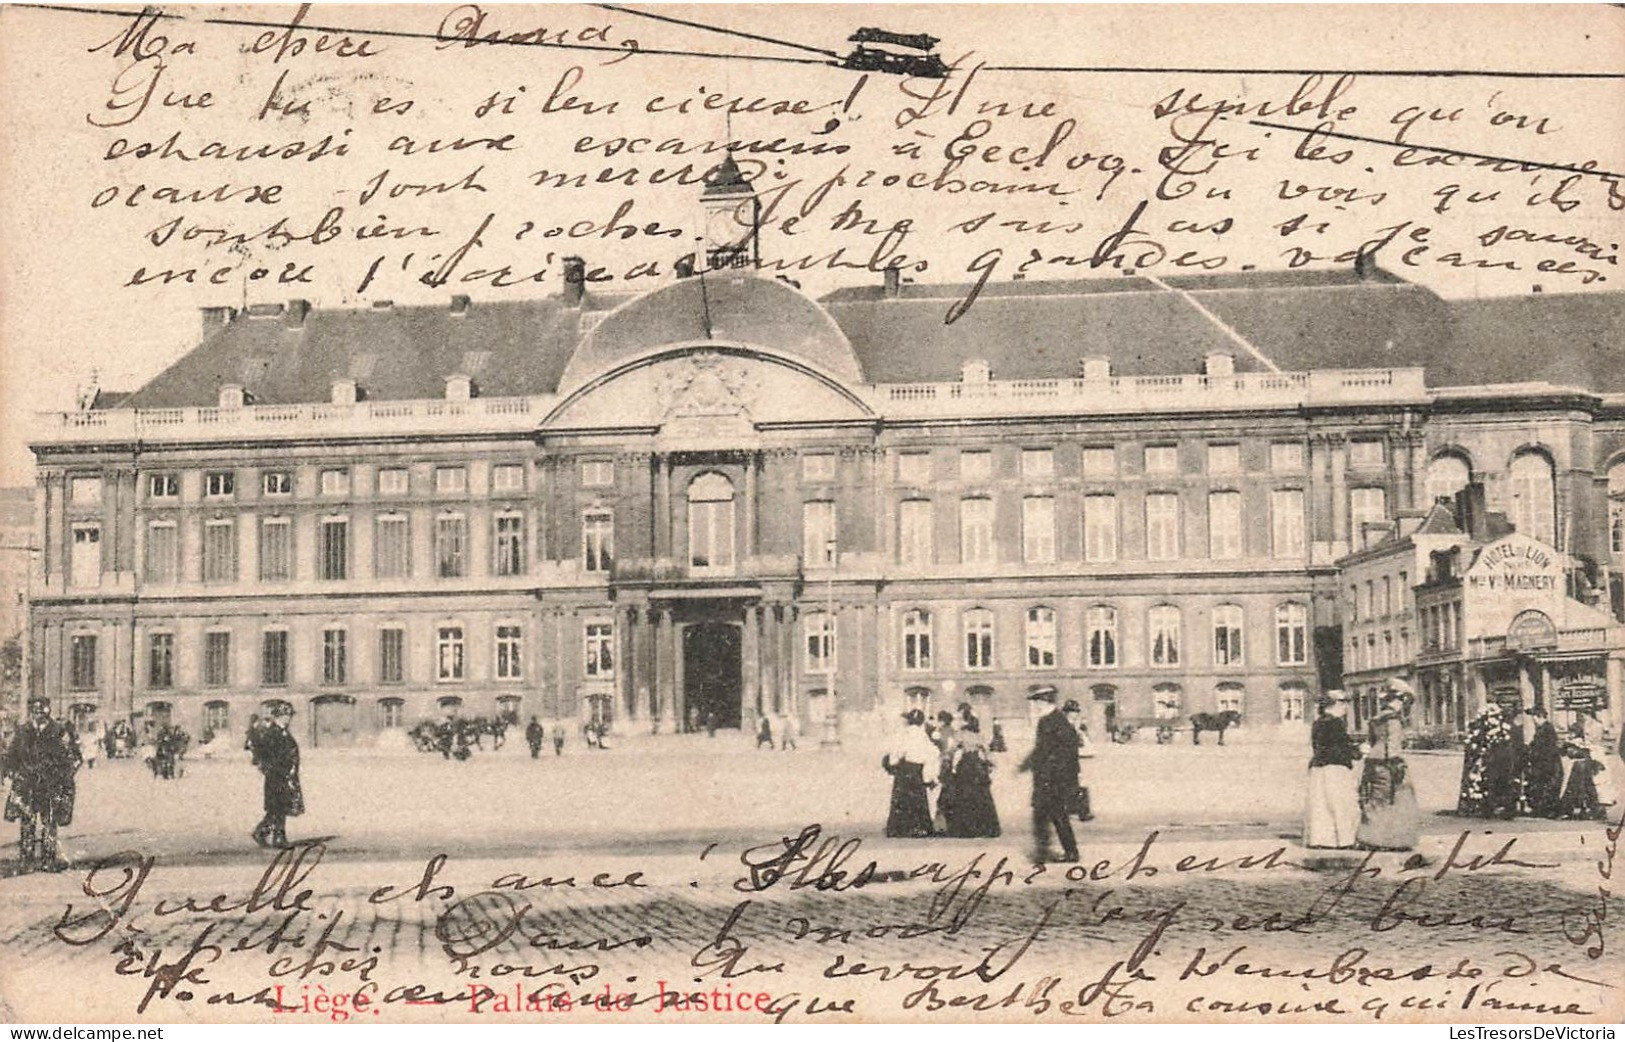 Ma chère Anna,
Que tu es silencieuse! Il me semble qu'on
aussi aux examens à Eecloo. Ici les examens
oraux sont mercredi prochain, Tu vois qu'ils
sont bien proches. Je ne sais pas si je saurai
encore t'écrire avant les grandes vacances.
HOTEL DU LION
Mme Vve MAGNERY
Quelle chance! Elles approchent petit
à petit. Dans 1 mois j'y serai bien
chez nous. Au revoir je t'embrasse de
tout cœur ainsi que Berthe Ta cousine qui t'aime
Liège. — Palais de Justice.
LesTresorsDeVictoria